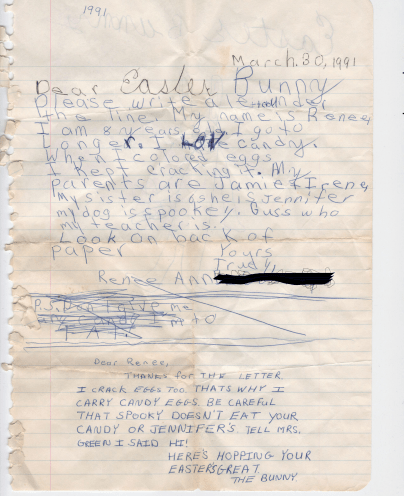 1991
March.30,1991
Dear Easter Bunny
Please write a under
the line. My name is Renee,
I am 8 years old I go to
Longer. I Love candy.
When I colored eggs
I Kept cracking it. My
Parents are Jamie + Irene,
My sister is Jennifer
my dog is spookey. Guss who
my teacher is.
Look on back of
paper Yours
Truly
Renee Ann
P.S. Don't give me
I'm to
FAT.
Dear Renee,
THANKS for THE LETTER.
I CRACK EGGS TOO. THATS WHY I
CARRY CANDY EGGS. BE CAREFUL
THAT SPOOKY DOESN'T EAT YOUR
CANDY OR JENNIFER'S. TELL MRS.
GREEN I SAID HI!
HERE'S HOPPING YOUR
EASTER'S GREAT.
THE BUNNY.